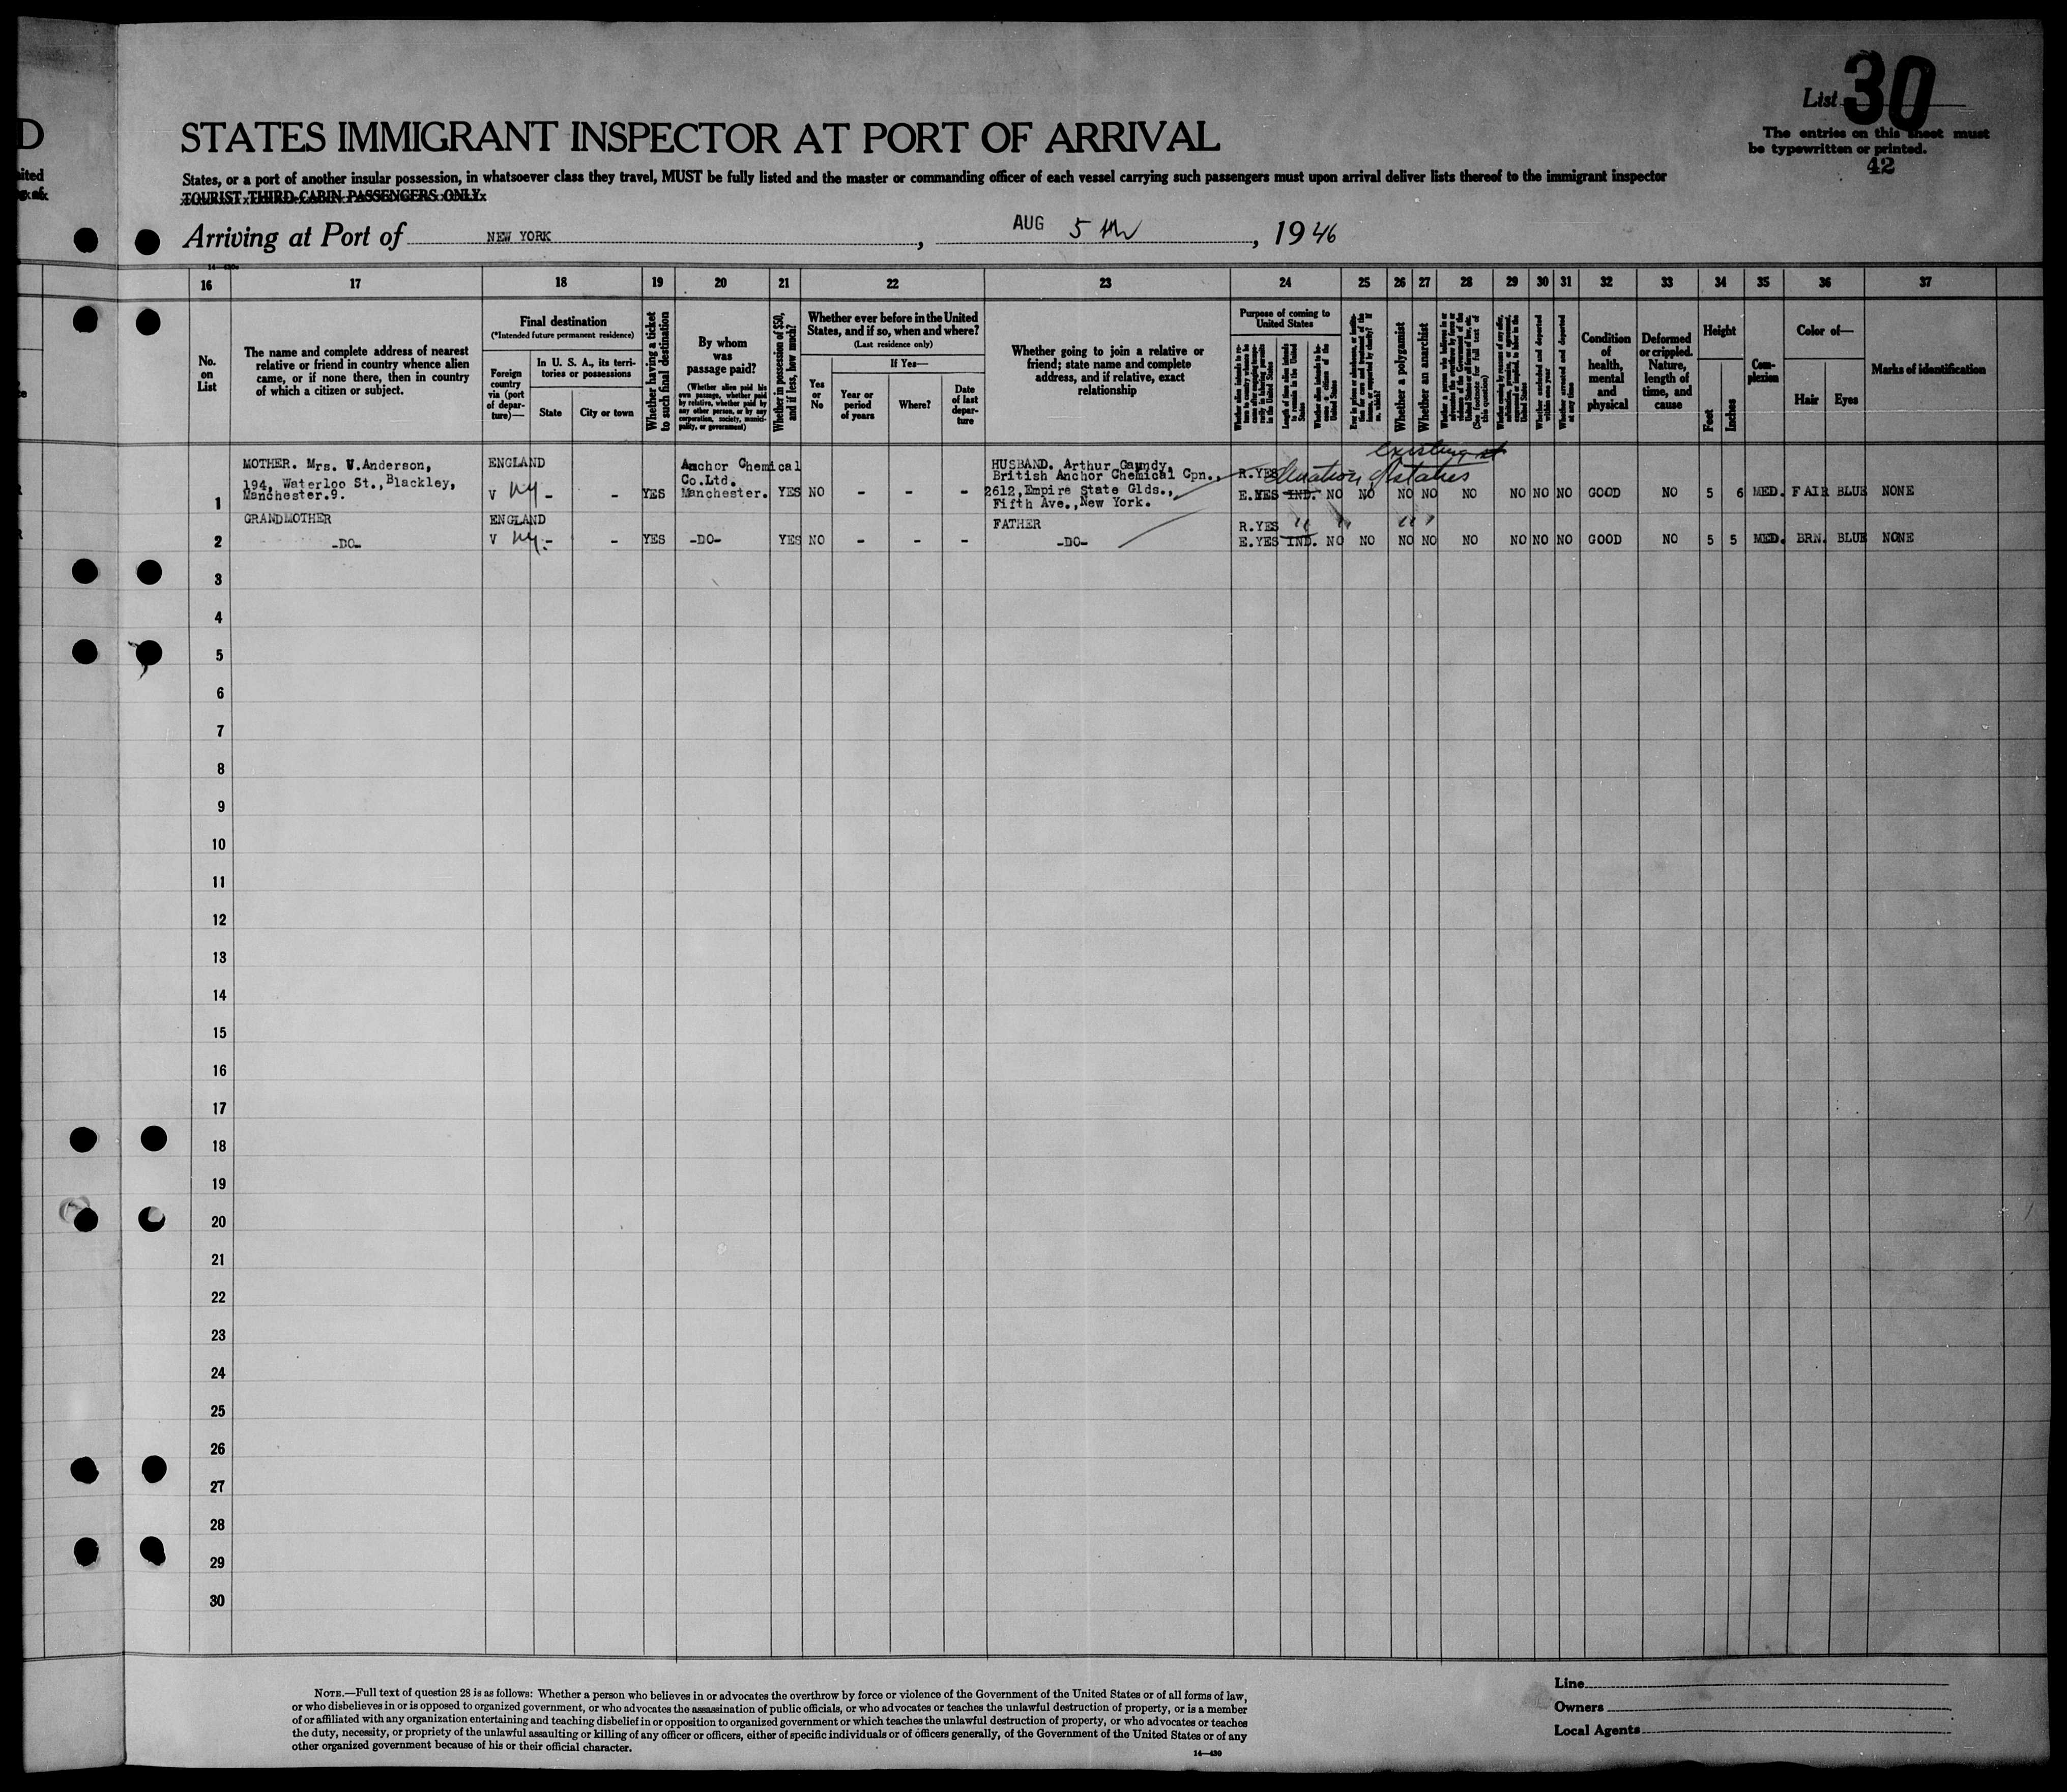 List 30
The entries on this sheet must
be typewritten or printed.
42
D
STATES IMMIGRANT INSPECTOR AT PORT OF ARRIVAL
States, or a port of another insular possession, in whatsoever class they travel, MUST be fully listed and the master or commanding officer of each vessel carrying such passengers must upon arrival deliver lists thereof to the immigrant inspector
TOURIST THIRD-CABIN PASSENGERS ONLY
Arriving at Port of NEW YORK, AUG 5th, 1946
16 17 18 19 20 21 22 23 24 25 26 27 28 29 30 31 32 33 34 35 36 37
No.
on
List
The name and complete address of nearest
relative or friend in country whence alien
came, or if none there, then in country
of which a citizen or subject.
Final destination
(*Intended future permanent residence)
Foreign
country
via (port
of depar-
ture)—
In U. S. A., its terri-
tories or possessions
State
City or town
Whether having a ticket
to such final destination
By whom
was
passage paid?
(Whether alien paid his
own passage, whether paid
by relative, whether paid by
any other person, or by any
corporation, society, munici-
pality, or government)
Whether in possession of $50,
and if less, how much?
Whether ever before in the United
States, and if so, when and where?
(Last residence only)
Yes
or
No
If Yes—
Year or
period
of years
Where?
Date
of last
depar-
ture
Whether going to join a relative or
friend; state name and complete
address, and if relative, exact
relationship
Purpose of coming to
United States
Length of time alien intends
to remain in the United
States
Whether alien intends to be-
come a citizen of the
United States
Whether a polygamist
Whether an anarchist
(See footnote for full text of
this question)
Whether excluded and deported
within one year
Whether arrested and deported
at any time
Condition
of
health,
mental
and
physical
Deformed
or crippled.
Nature,
length of
time, and
cause
Height
Feet
Inches
Com-
plexion
Color of—
Hair
Eyes
Marks of identification
existing
MOTHER. Mrs. W.Anderson, ENGLAND Anchor Chemical HUSBAND. Arthur Gaundy,
194, Waterloo St., Blackley, Co.Ltd. British Anchor Chemical Cpn., R.YES states
Manchester.9. V NY - - YES Manchester. YES NO - - - 2612,Empire State Glds., E.YES IND. NO NO NO NO NO NO NO NO GOOD NO 5 6 MED. FAIR BLUE NONE
1 Fifth Ave.,New York.
GRANDMOTHER ENGLAND FATHER R.YES " " " "
2 -DO- V NY. - - YES -DO- YES NO - - - -DO- E.YES IND. NO NO NO NO NO NO NO NO GOOD NO 5 5 MED. BRN. BLUE NONE
3
4
5
6
7
8
9
10
11
12
13
14
15
16
17
18
19
20
21
22
23
24
25
26
27
28
29
30
NOTE.—Full text of question 28 is as follows: Whether a person who believes in or advocates the overthrow by force or violence of the Government of the United States or of all forms of law,
or who disbelieves in or is opposed to organized government, or who advocates the assassination of public officials, or who advocates or teaches the unlawful destruction of property, or is a member
of or affiliated with any organization entertaining and teaching disbelief in or opposition to organized government or which teaches the unlawful destruction of property, or who advocates or teaches
the duty, necessity, or propriety of the unlawful assaulting or killing of any officer or officers, either of specific individuals or of officers generally, of the Government of the United States or of any
other organized government because of his or their official character.
14—430
Line
Owners
Local Agents